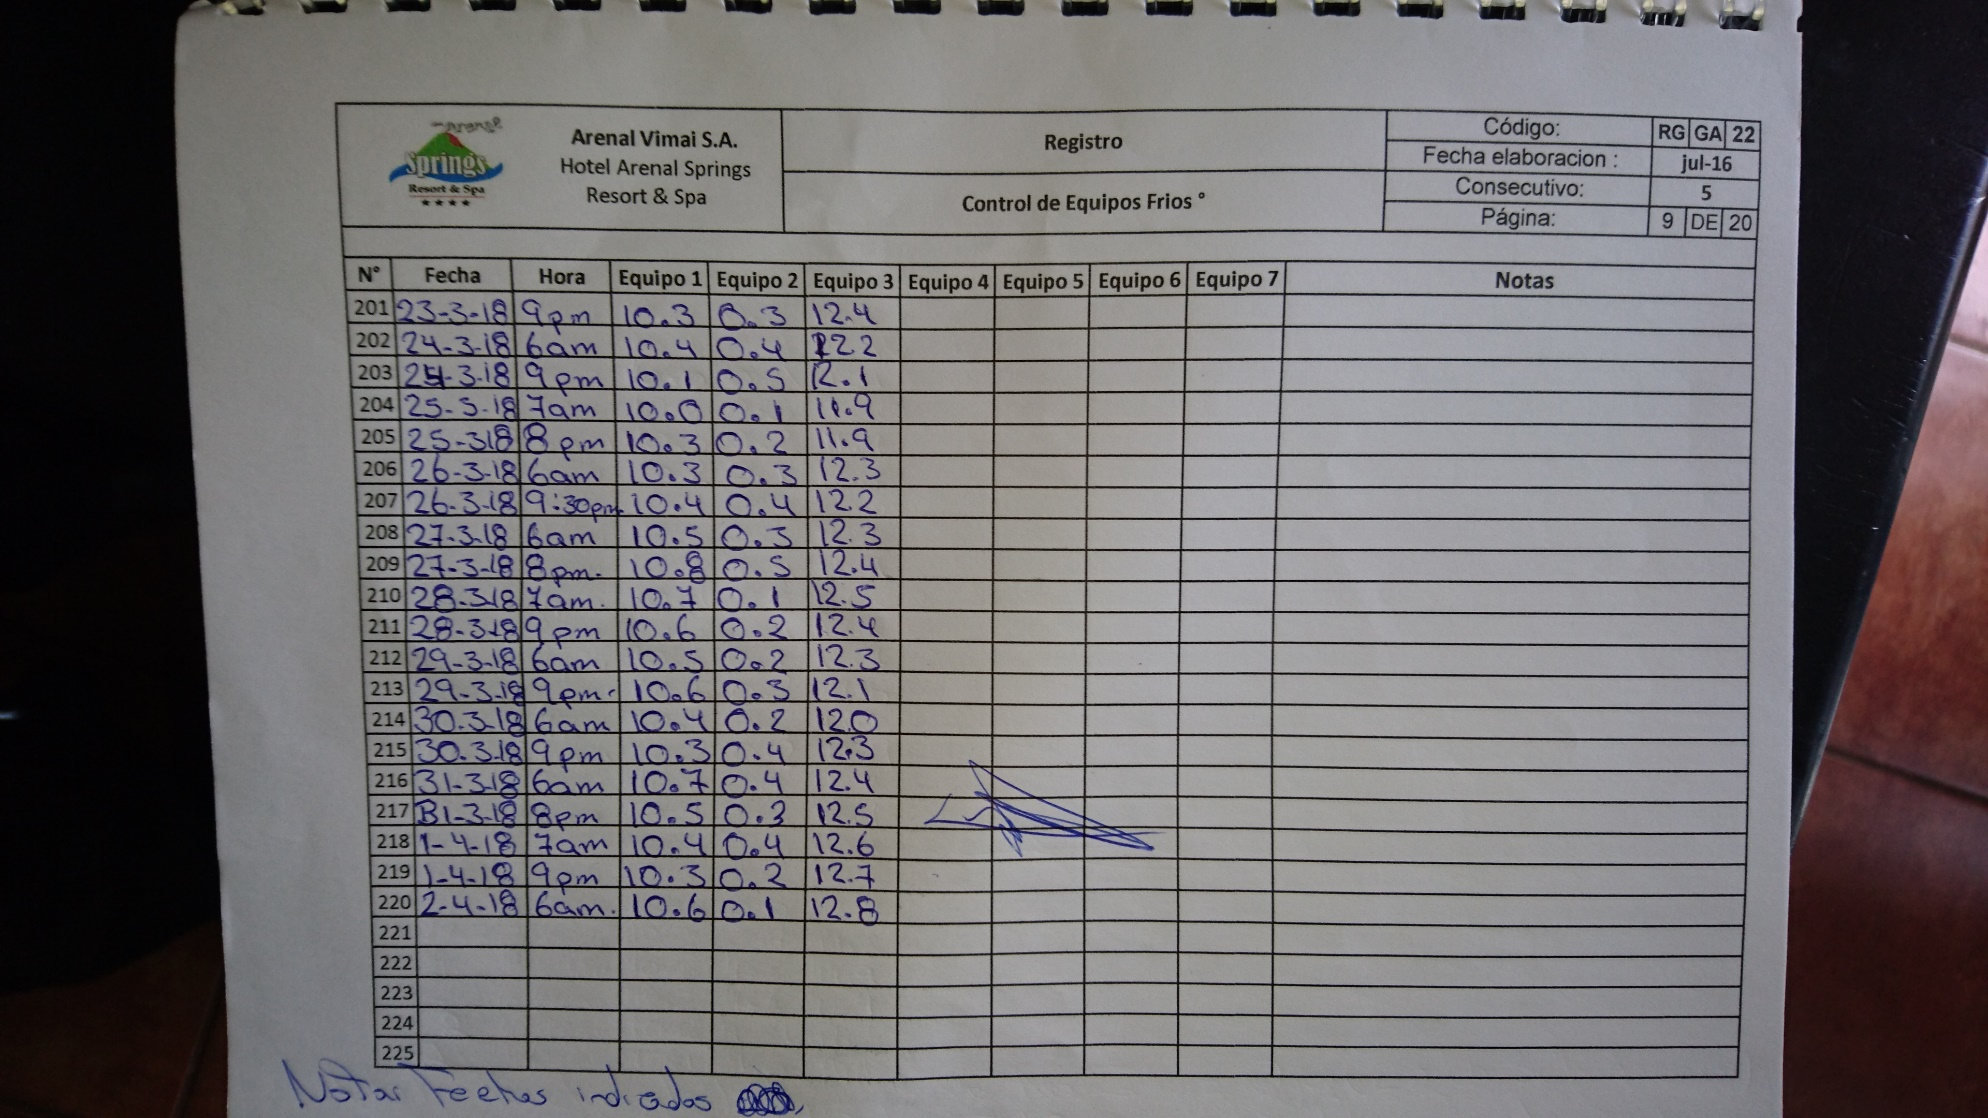 Arenal
Springs
Resort & Spa
Arenal Vimai S.A.
Hotel Arenal Springs
Resort & Spa
Registro
Control de Equipos Frios °
Código: RG GA 22
Fecha elaboracion : jul-16
Consecutivo: 5
Página: 9 DE 20
N° Fecha Hora Equipo 1 Equipo 2 Equipo 3 Equipo 4 Equipo 5 Equipo 6 Equipo 7 Notas
201 23-3-18 9pm 10.3 0.3 12.4
202 24-3-18 6am 10.4 0.4 12.2
203 24-3-18 9pm 10.1 0.5 12.1
204 25-3-18 7am 10.0 0.1 11.9
205 25-3-18 8pm 10.3 0.2 11.9
206 26-3-18 6am 10.3 0.3 12.3
207 26-3-18 9:30pm 10.4 0.4 12.2
208 27-3-18 6am 10.5 0.3 12.3
209 27-3-18 8pm. 10.8 0.5 12.4
210 28-3-18 7am. 10.7 0.1 12.5
211 28-3-18 9pm 10.6 0.2 12.4
212 29-3-18 6am 10.5 0.2 12.3
213 29-3-18 9pm. 10.6 0.3 12.1
214 30.3-18 6am 10.4 0.2 12.0
215 30.3.18 9pm 10.3 0.4 12.3
216 31-3-18 6am 10.7 0.4 12.4
217 31-3-18 8pm 10.5 0.3 12.5
218 1-4-18 7am 10.4 0.4 12.6
219 1-4-18 9pm 10.3 0.2 12.7
220 2-4-18 6am. 10.6 0.1 12.8
221
222
223
224
225
Notar Fechas indicadas